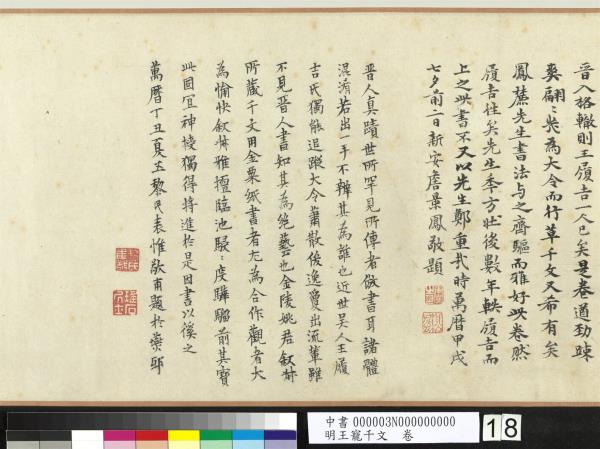 晉人格轍則王履吉一人已矣是卷遒勁踈
爽翩〻然為大令而行草千文又希有矣
鳳麓先生書法与之齊驅而雅好此卷然
履吉往矣先生季方壮後數年軼履吉而
上之此書不又以先生鄭重哉時萬曆甲戌
七夕前二日新安詹景鳳敬題
晉人真蹟世所罕見所傳者倣書耳諸體
混淆若出一手不辨其為誰也近世吴人王履
吉氏獨能追蹤大令蕭散俊逸夐出流輩雖
不見晉人書知其為絶藝也金陵姚君叙州
所藏千文用金粟紙書者尤為合作觀者大
為愉快叙州雅擅臨池駸〻度驊騮前其寳
此固宜神情獨得將進於是因書以俟之
萬曆丁丑夏五黎民表惟敬甫題於藥邸
中書 000003N000000000
明王寵千文 卷
18